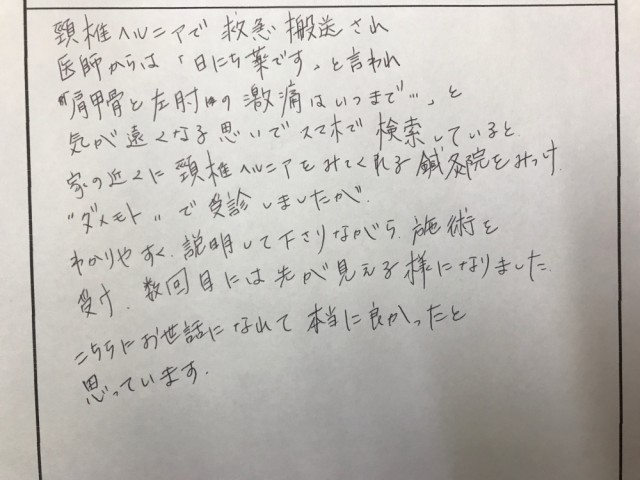 頸椎ヘルニアで救急搬送され
医師からは「日にち薬です」と言われ
"肩甲骨と左肘の激痛はいつまで…」と
気が遠くなる思いでスマホで検索していると、
家の近くに頸椎ヘルニアをみてくれる鍼灸院をみつけ、
"ダメモト"で受診しましたが、
わかりやすく、説明して下さりながら、施術を
受け、数回目には先が見える様になりました。
こちらにお世話になれて本当に良かったと
思っています。